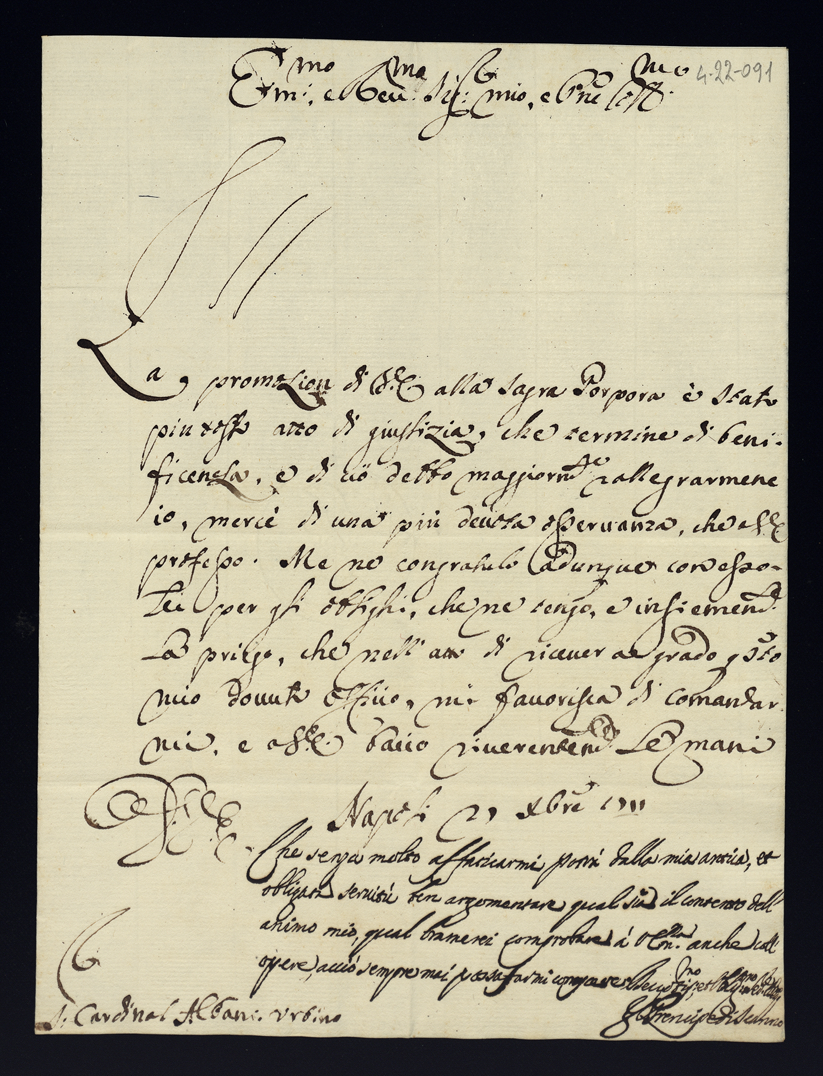 Em:mo e Reu:mo Sig:r mio, e Pne Coll:mo
4-22-091
La promozion di V.E. alla Sagra Porpora è stata
piu tosto atto di giustizia, che termine di beni-
ficenza, e di ciò debbo maggiorm:te rallegrarmene
io, mercè di una più deuota osseruanza, che a V.E.
professo. Me ne congratulo adunque con esso-
Lei per gli obblighi, che ne tengo, e insiemem:te
La priego, che nell'atto di riceuer a grado q:sto
mio douuto officio, mi fauorisca di comandar-
mi, e a V.E. bacio riuerentem:te Le mani
Napoli 29 Xbre 1711
Che senza molto affaticarmi potrà dalla mia antica, et
obligata seruitù ben argomentare qual sia il contento dell'
animo mio, qual bramerei comprobare à V.Em: anche coll'
opere, acciò sempre mai possa farmi conoscere
Il Prencipe di Scanno
S. Cardinal Albani. Urbino